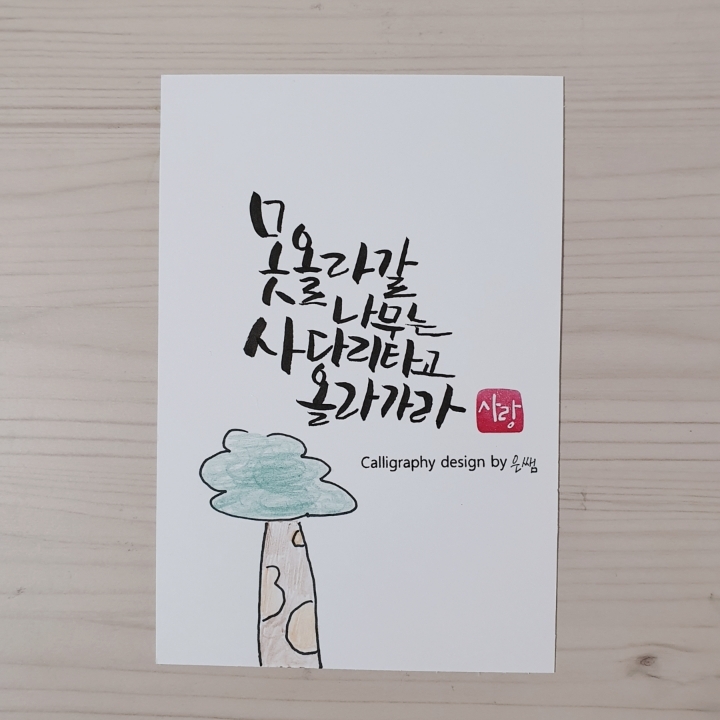 못올라갈
나무는
사다리타고
올라가라
사랑
Calligraphy design by 은쌤